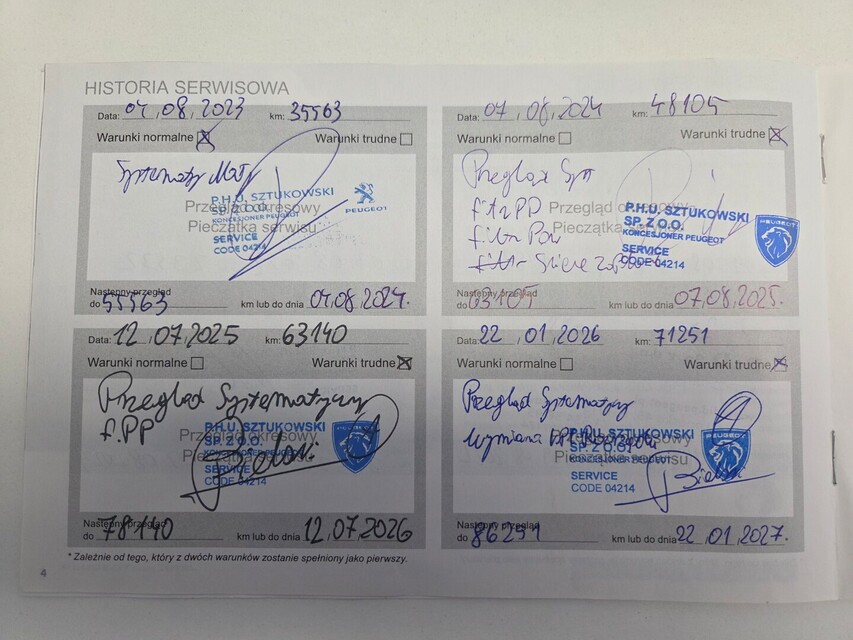 HISTORIA SERWISOWA
Data: 04,08,2023 km: 35563
Warunki normalne Warunki trudne
Systematy
Przegląd okresowy
Pieczątka serwisu
P.H.U. SZTUKOWSKI
SP. Z O.O.
KONCESJONER PEUGEOT
SERVICE
CODE 04214
PEUGEOT
Następny przegląd
do 55563 km lub do dnia 04,08,2024.
Data: 07,08,2024 km: 48105
Warunki normalne Warunki trudne
Przegląd
filtr PP
filtr
filtr
Przegląd okresowy
Pieczątka serwisu
P.H.U. SZTUKOWSKI
SP. Z O.O.
KONCESJONER PEUGEOT
SERVICE
CODE 04214
PEUGEOT
Następny przegląd
do 63105 km lub do dnia 07,08,2025.
Data: 12,07,2025 km: 63140
Warunki normalne Warunki trudne
Przegląd Systematyczny
f.PP
Przegląd okresowy
Pieczątka serwisu
P.H.U. SZTUKOWSKI
SP. Z O.O.
KONCESJONER PEUGEOT
SERVICE
CODE 04214
PEUGEOT
Następny przegląd
do 78140 km lub do dnia 12,07,2026
Data: 22,01,2026 km: 71251
Warunki normalne Warunki trudne
Przegląd Systematyczny
Wymiana
Przegląd okresowy
Pieczątka serwisu
P.H.U. SZTUKOWSKI
SP. Z O.O.
KONCESJONER PEUGEOT
SERVICE
CODE 04214
PEUGEOT
Następny przegląd
do 86251 km lub do dnia 22,01,2027.
* Zależnie od tego, który z dwóch warunków zostanie spełniony jako pierwszy.
4